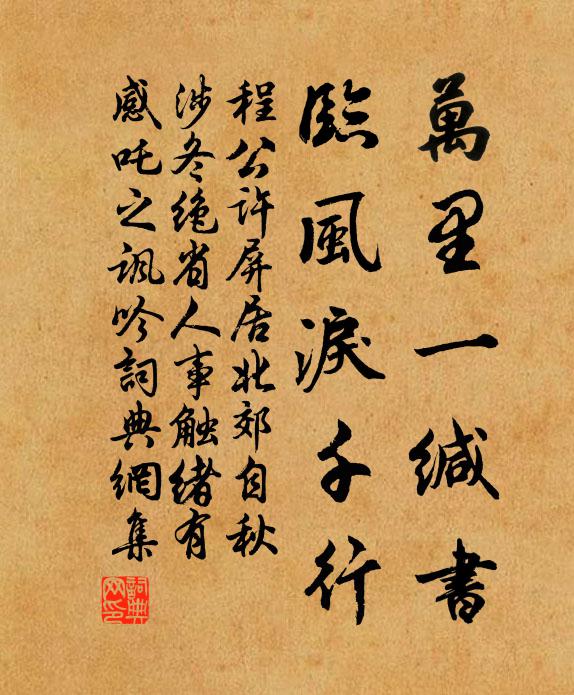 萬里一緘書
臨風淚千行
程公許屏居北郊自秋
涉冬絶省人事触緒有
感吒之諷吟詞典網集
詞典
网印